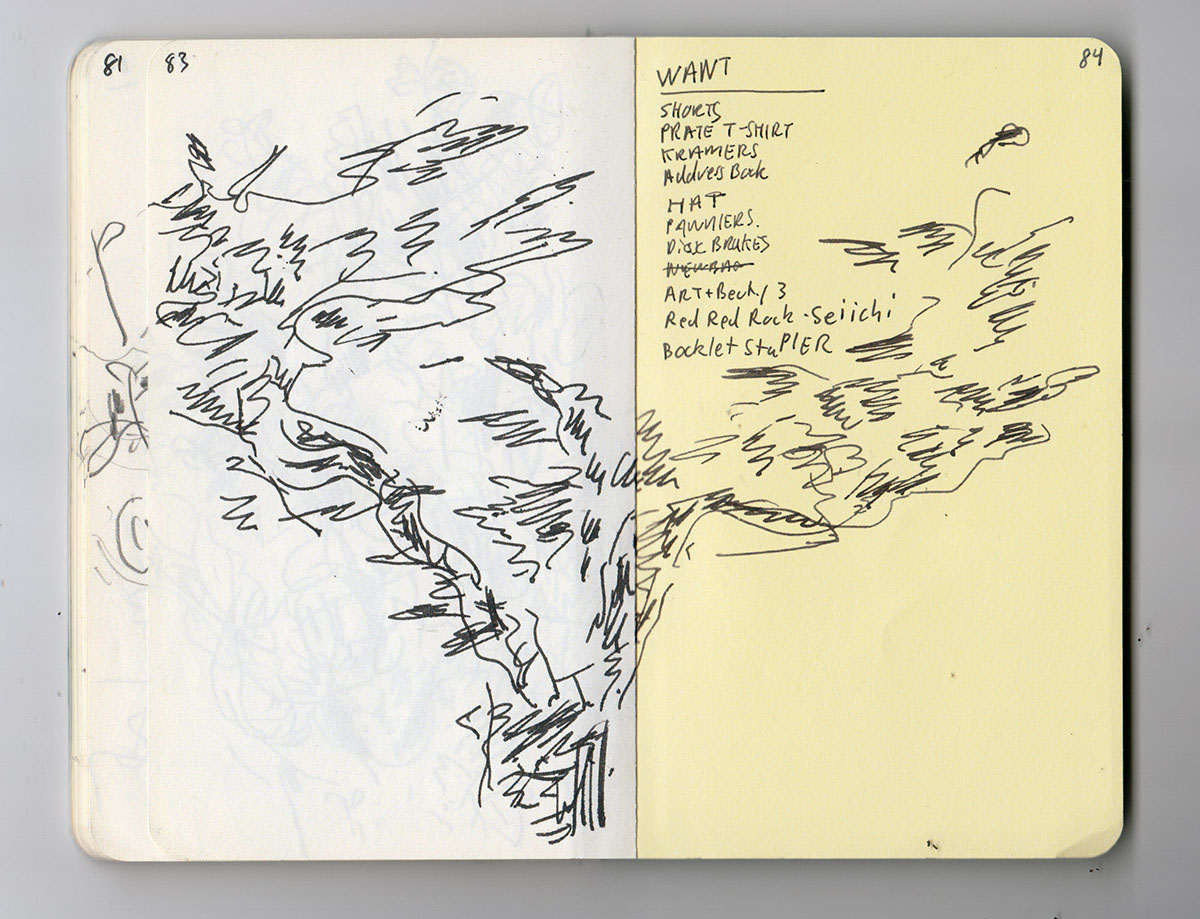 81
83
WANT
SHORTS
PRATE T-SHIRT
KRAMERS
Address Book
HAT
PAWNIERS.
Disk BRAKES
NEW BAG
ART+Bech/3
Red Red Rock - Seiichi
Booklet StaPlER
84